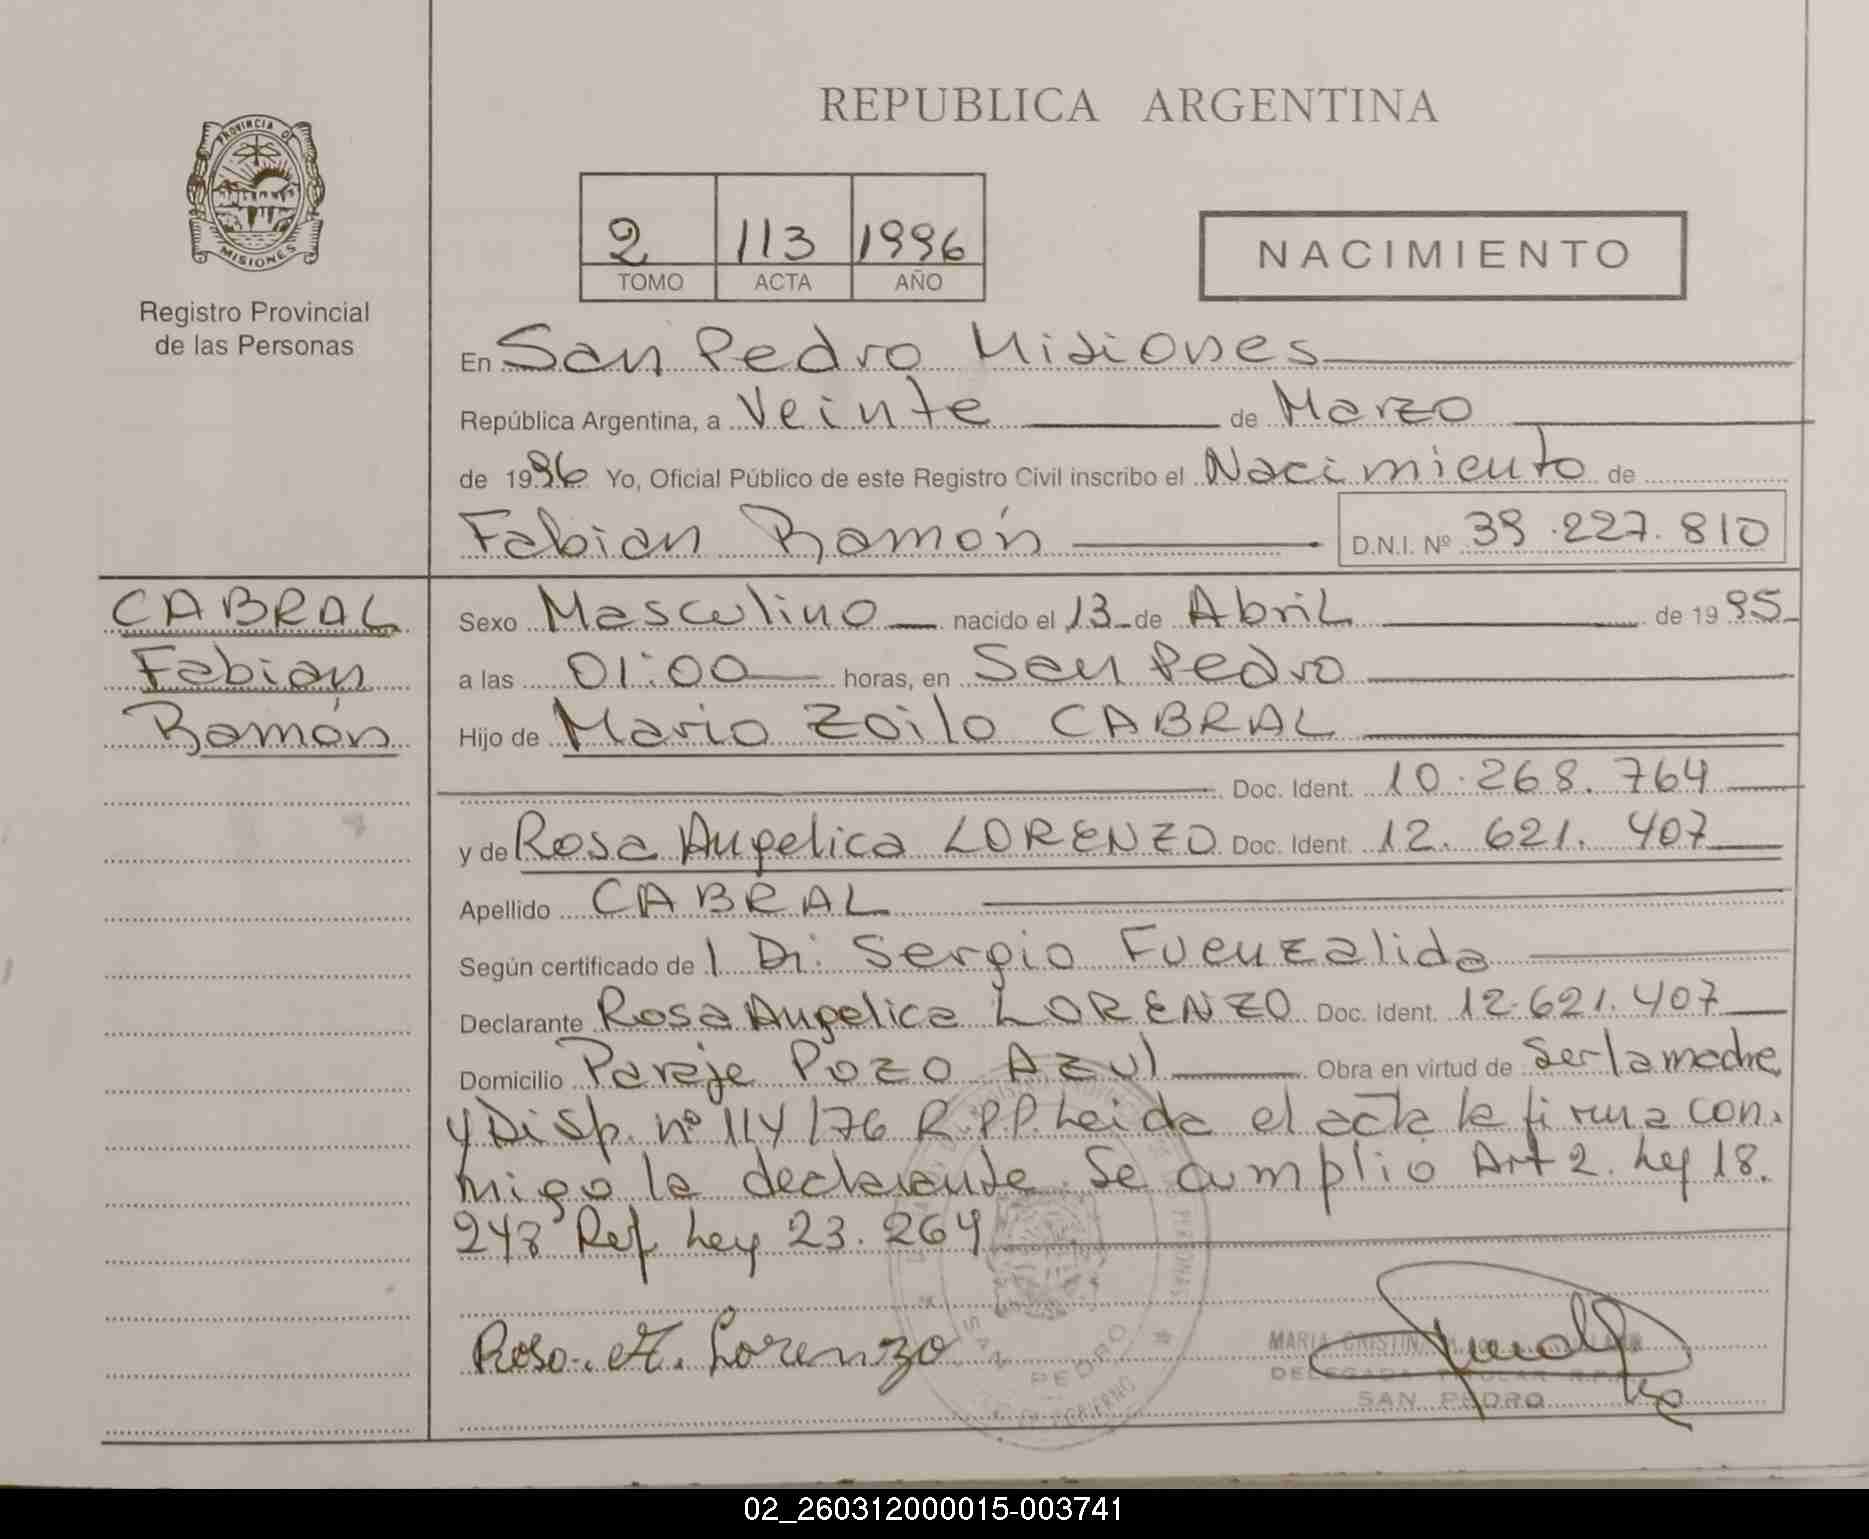 REPUBLICA ARGENTINA
PROVINCIA DE
MISIONES
Registro Provincial
de las Personas
2 113 1996
TOMO ACTA AÑO
NACIMIENTO
En San Pedro Misiones
República Argentina, a Veinte de Marzo
de 1996 Yo, Oficial Público de este Registro Civil inscribo el Nacimiento de
Fabian Ramón D.N.I. Nº 39.227.810
CABRAL
Fabián
Ramón
Sexo Masculino nacido el 13 de Abril de 1995
a las 01:00 horas, en San Pedro
Hijo de Mario Zoilo CABRAL
Doc. Ident. 10.268.764
y de Rosa Angelica LORENZO Doc. Ident. 12.621.407
Apellido CABRAL
Según certificado de Sergio Fuenzalida
Declarante Rosa Angelica LORENZO Doc. Ident. 12.621.407
Domicilio Paraje Pozo Azul Obra en virtud de Ser la madre
y Disp. nº 114/76 R.P.P. Leida el acta la firma con.
migo la declarante. Se cumplio Art 2. Ley 18.
248 Ref. Ley 23.264
Rosa A. Lorenzo
MARIA CRISTINA
DELEGADA TITULAR R.P.P.
SAN PEDRO
SAN PEDRO
02_260312000015-003741